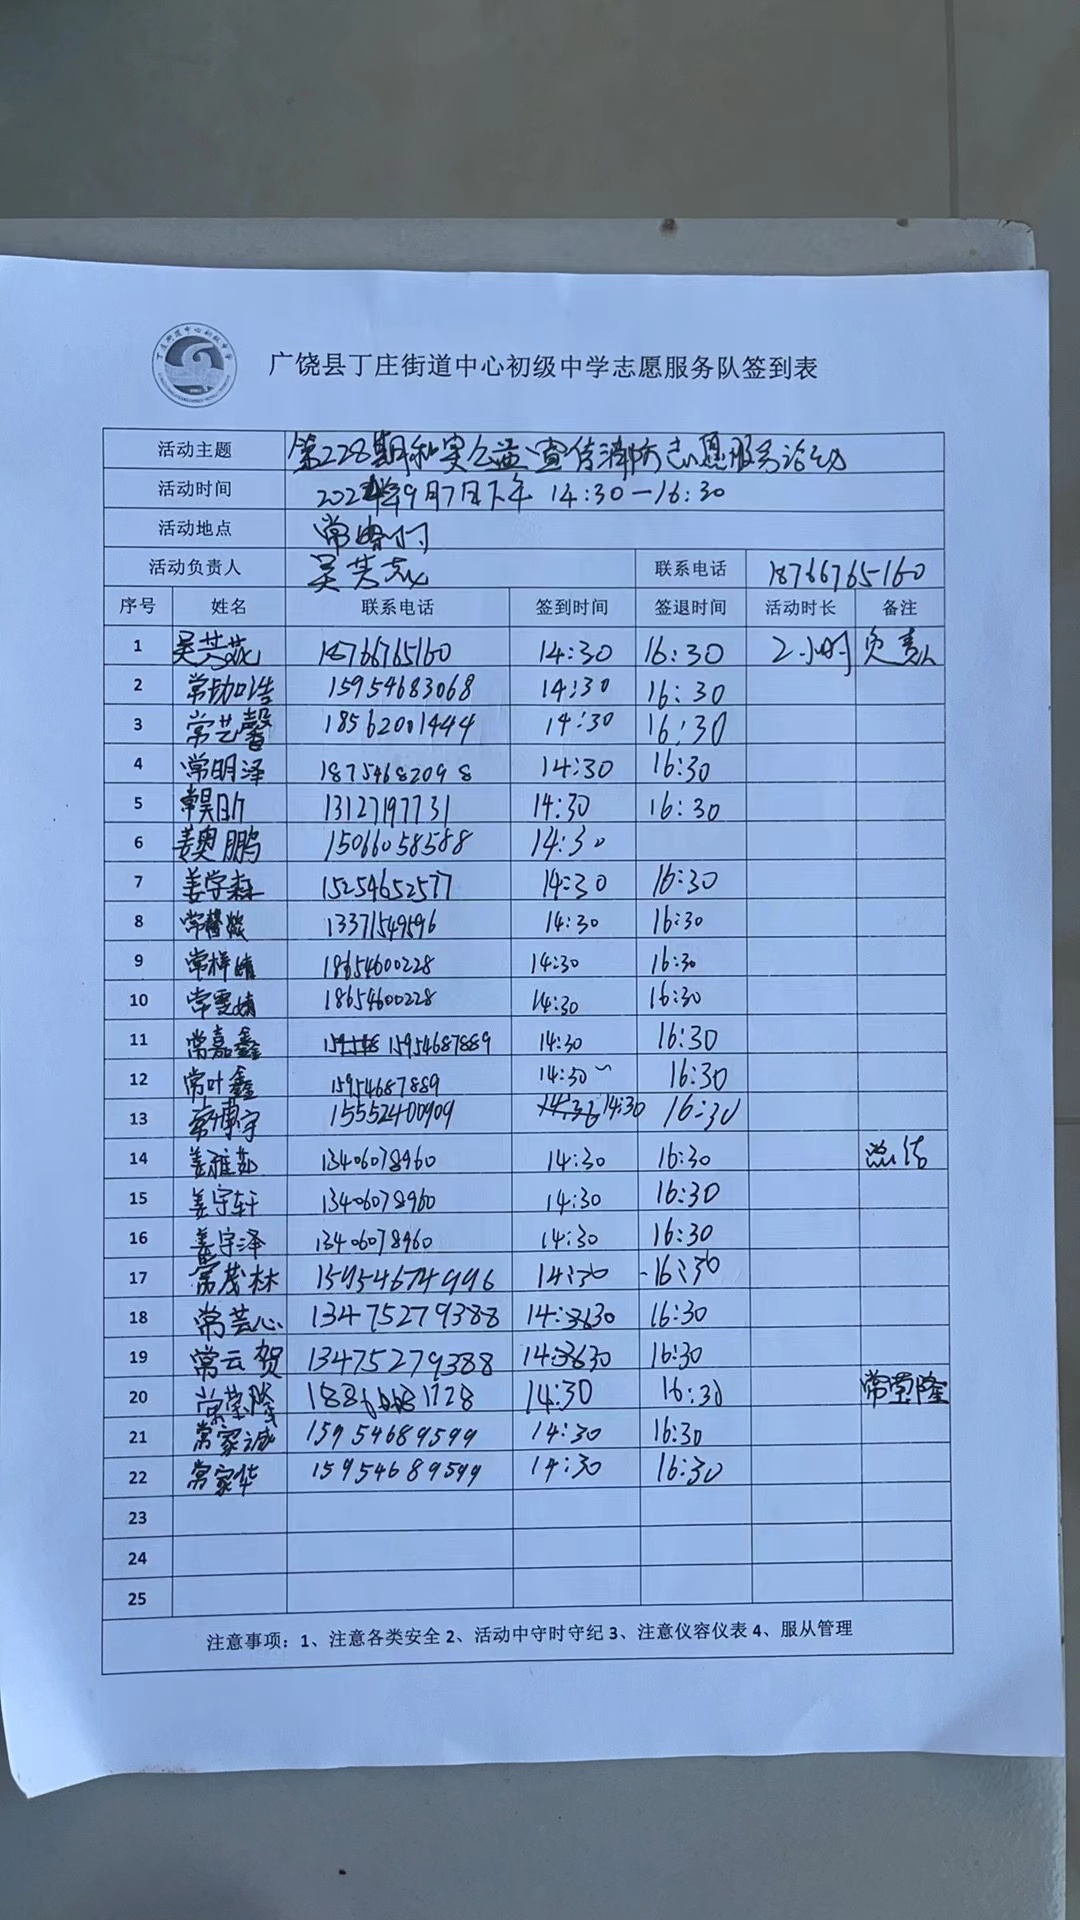 广饶县丁庄街道中心初级中学志愿服务队签到表
活动主题 第228期和实公益宣传消防志愿服务活动
活动时间 2024年9月7日下午 14:30—16:30
活动地点 常
活动负责人 吴芙蓉 联系电话 18766765160
序号 姓名 联系电话 签到时间 签退时间 活动时长 备注
1 吴芙蓉 18766765160 14:30 16:30 2小时 负责人
2 常 15954683068 14:30 16:30
3 常艺馨 18562001444 14:30 16:30
4 常明泽 18754682098 14:30 16:30
5 常昊 13127197731 14:30 16:30
6 姜奥鹏 15066058588 14:30
7 姜学森 15254652577 14:30 16:30
8 常馨 13371549596 14:30 16:30
9 常梓晴 18654600228 14:30 16:30
10 常雯婧 18654600228 14:30 16:30
11 常嘉鑫 15954687889 14:30 16:30
12 常叶鑫 15954687889 14:30 16:30
13 常博宇 15552400909 14:30 16:30
14 姜雅茹 13406078960 14:30 16:30 总结
15 姜宇轩 13406078960 14:30 16:30
16 姜宇泽 13406078960 14:30 16:30
17 常茂林 15954674996 14:30 16:30
18 常芸心 13475279388 14:30 16:30
19 常云贺 13475279388 14:30 16:30
20 常荣隆 14:30 16:30 常荣隆
21 常家诚 15954689599 14:30 16:30
22 常家华 15954689599 14:30 16:30
23
24
25
注意事项：1、注意各类安全 2、活动中守时守纪 3、注意仪容仪表 4、服从管理